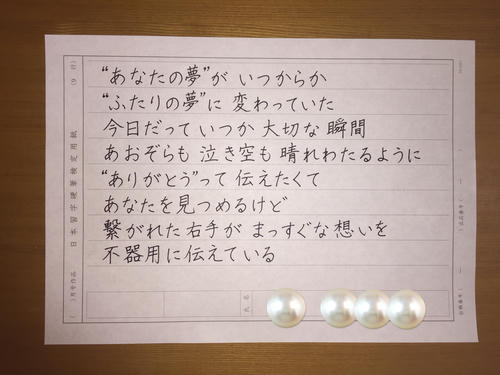 “あなたの夢”が いつからか
“ふたりの夢”に 変わっていた
今日だって いつか 大切な 瞬間
あおぞらも 泣き空も 晴れわたるように
“ありがとう”って 伝えたくて
あなたを見つめるけど
繋がれた右手が まっすぐな 想いを
不器用に伝えている
日本習字硬筆検定用紙
(9 行)
( )月分作品
氏名